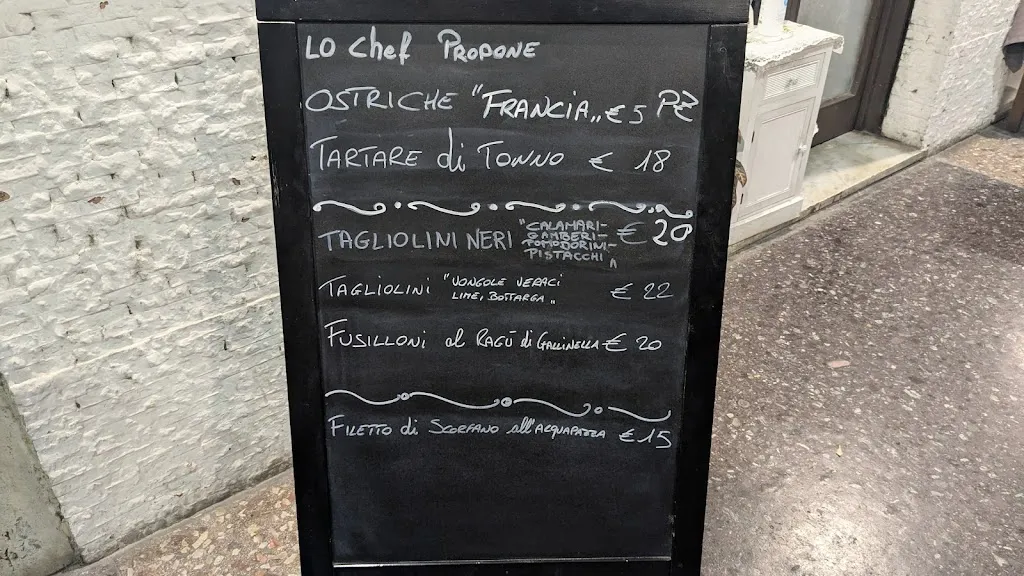 LO chef PROPONE
OSTRICHE "FRANCIA" € 5 PZ
TARTARE di TONNO € 18
TAGLIOLINI NERI "CALAMARI- € 20
GAMBERI-
POMODORINI-
PISTACCHI"
TAGLIOLINI "VONGOLE VERACI € 22
LIME, BOTTARGA"
FUSILLONI al RAGÙ di GALLINELLA € 20
FILETTO di SCORFANO all'ACQUAPAZZA € 15